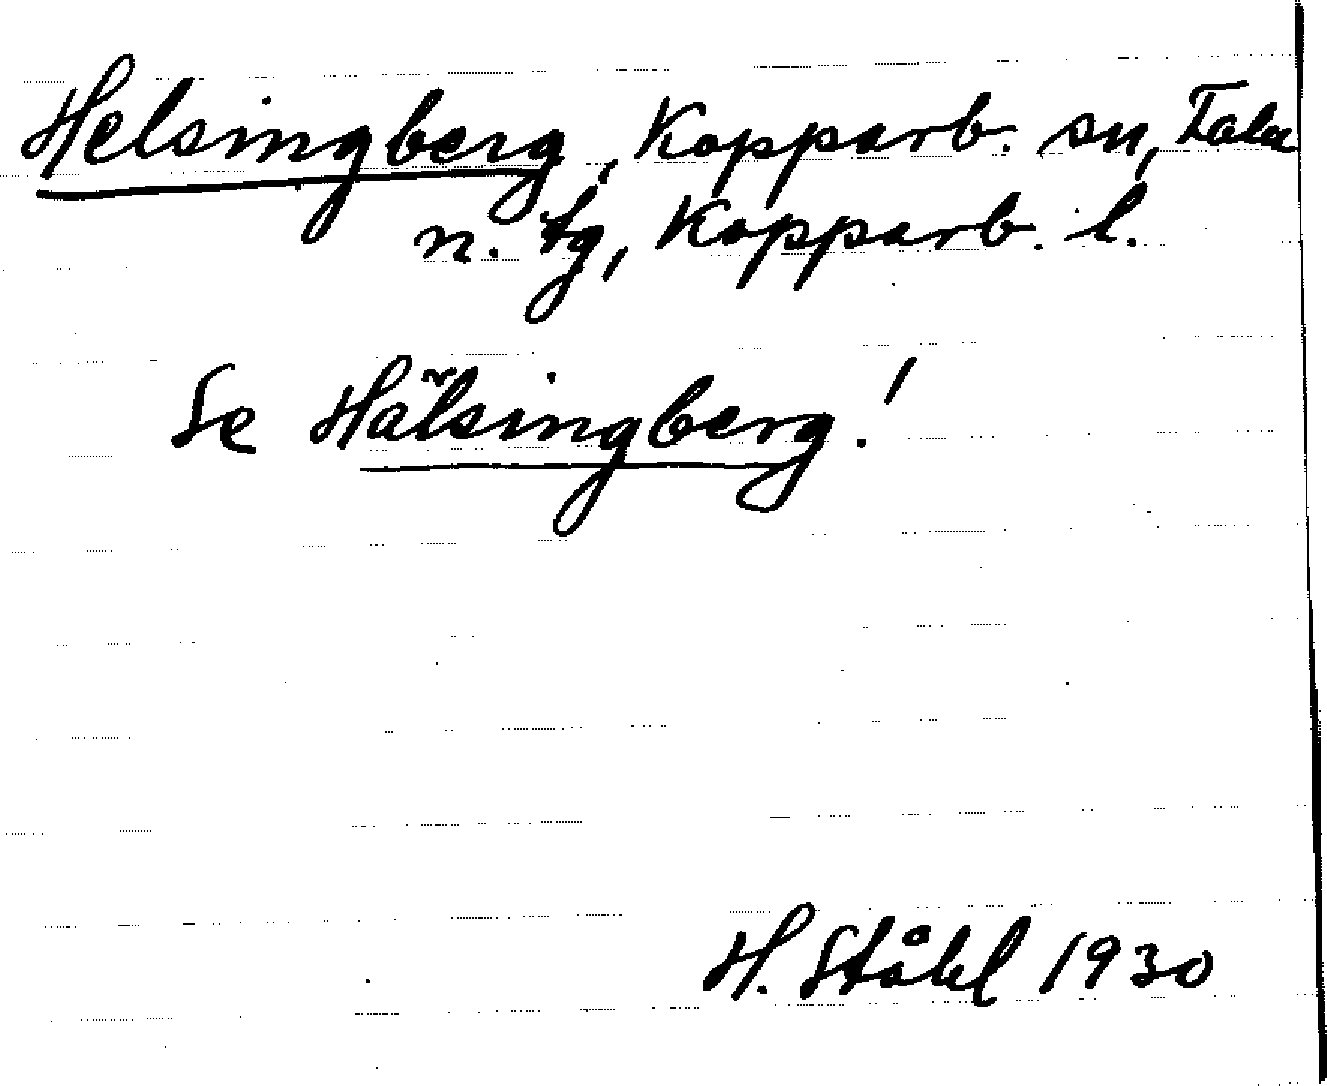 Helsingberg, Kopparb. sn, Falu
n. tg, Kopparb. l.
Se Hälsingberg!
H. Ståhl 1930